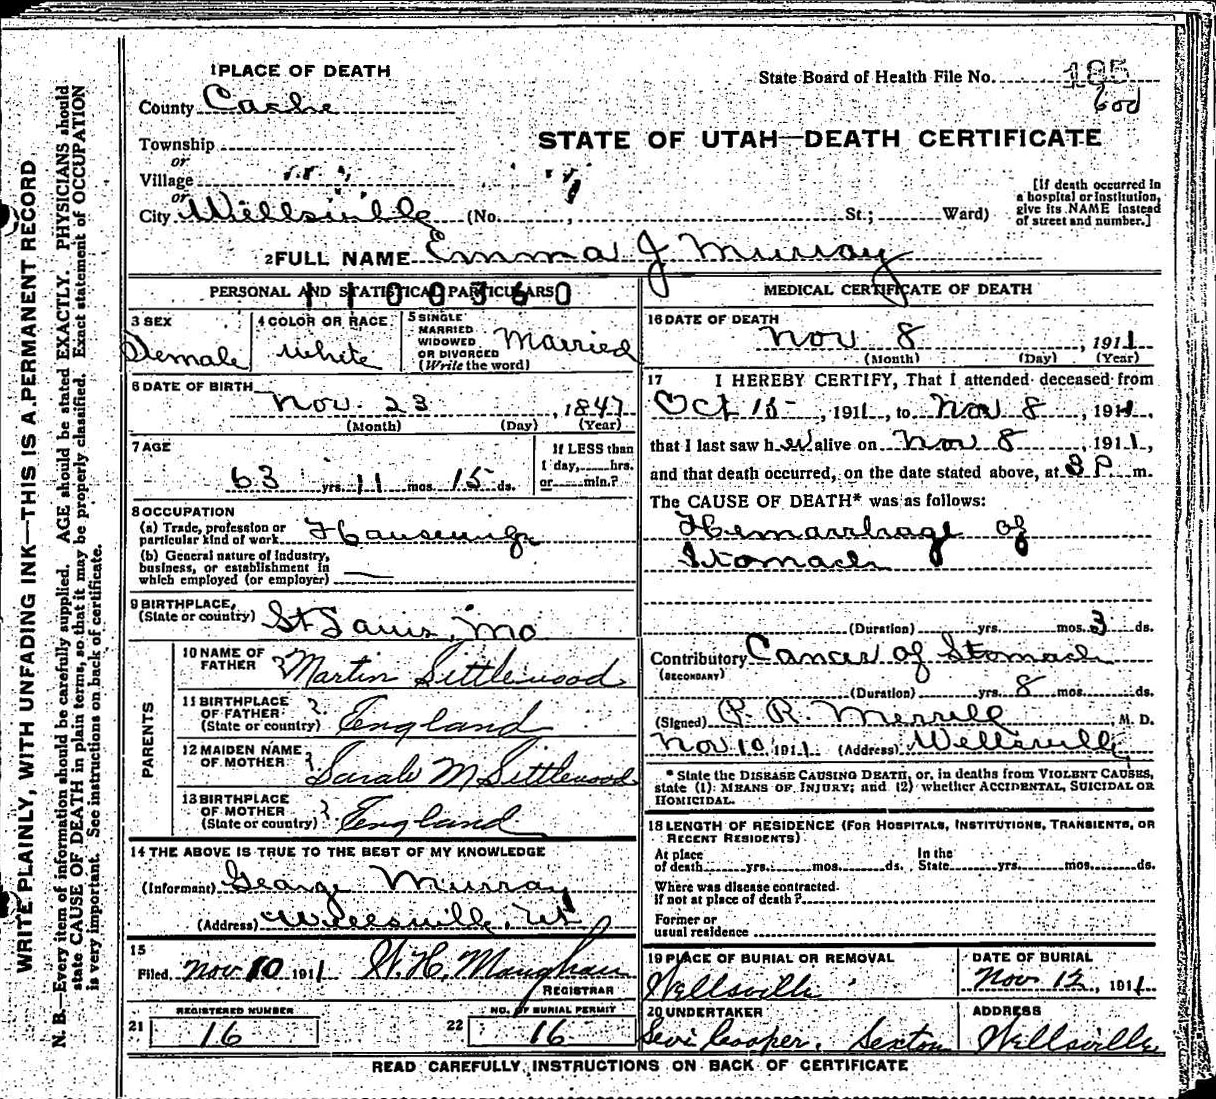 WRITE PLAINLY, WITH UNFADING INK—THIS IS A PERMANENT RECORD
N. B.—Every item of information should be carefully supplied. AGE should be stated EXACTLY. PHYSICIANS should
state CAUSE OF DEATH in plain terms, so that it may be properly classified. Exact statement of OCCUPATION
is very important. See instructions on back of certificate.
1 PLACE OF DEATH
State Board of Health File No. 185
County Cache
Township
or
Village
or
City Wellsville (No. , St.; Ward)
STATE OF UTAH—DEATH CERTIFICATE
[If death occurred in
a hospital or institution,
give its NAME instead
of street and number.]
2 FULL NAME Emma J Murray
PERSONAL AND STATISTICAL PARTICULARS
1100360
3 SEX
Female
4 COLOR OR RACE
White
5 SINGLE
MARRIED
WIDOWED
OR DIVORCED
(Write the word)
Married
6 DATE OF BIRTH
Nov 23, 1847
(Month) (Day) (Year)
7 AGE
63 yrs. 11 mos. 15 ds.
If LESS than
1 day, hrs.
or min.?
8 OCCUPATION
(a) Trade, profession or
particular kind of work Housewife
(b) General nature of industry,
business, or establishment in
which employed (or employer)
9 BIRTHPLACE,
(State or country) St Louis, Mo
PARENTS
10 NAME OF
FATHER Martin Littlewood
11 BIRTHPLACE
OF FATHER
(State or country) England
12 MAIDEN NAME
OF MOTHER Sarah M Littlewood
13 BIRTHPLACE
OF MOTHER
(State or country) England
14 THE ABOVE IS TRUE TO THE BEST OF MY KNOWLEDGE
(Informant) George Murray
(Address) Wellsville, Ut
15
Filed Nov 10 1911 W. H. Maughan
REGISTRAR
REGISTERED NUMBER
21 16
NO. OF BURIAL PERMIT
22 16
MEDICAL CERTIFICATE OF DEATH
16 DATE OF DEATH
Nov 8, 1911
(Month) (Day) (Year)
17 I HEREBY CERTIFY, That I attended deceased from
Oct 15, 1911, to Nov 8, 1911,
that I last saw her alive on Nov 8, 1911,
and that death occurred, on the date stated above, at 3 P m.
The CAUSE OF DEATH* was as follows:
Hemarrhage of
Stomach
(Duration) yrs. mos. 3 ds.
Contributory Cancer of Stomach
(SECONDARY)
(Duration) yrs. 8 mos. ds.
(Signed) P. R. Merrill M. D.
Nov 10 1911 (Address) Wellsville
* State the DISEASE CAUSING DEATH, or, in deaths from VIOLENT CAUSES,
state (1) MEANS OF INJURY; and (2) whether ACCIDENTAL, SUICIDAL OR
HOMICIDAL.
18 LENGTH OF RESIDENCE (FOR HOSPITALS, INSTITUTIONS, TRANSIENTS, OR
RECENT RESIDENTS)
At place
of death yrs. mos. ds.
In the
State yrs. mos. ds.
Where was disease contracted
if not at place of death?
Former or
usual residence
19 PLACE OF BURIAL OR REMOVAL
Wellsville
DATE OF BURIAL
Nov 12, 1911
20 UNDERTAKER
Levi Cooper. Sexton
ADDRESS
Wellsville
READ CAREFULLY INSTRUCTIONS ON BACK OF CERTIFICATE